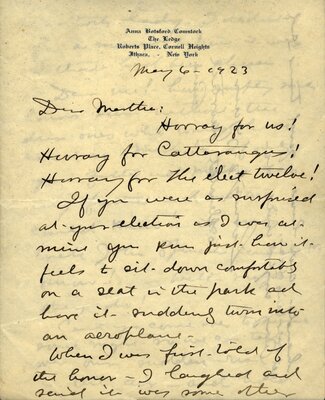 Anna Botsford Comstock
The Ledge
Roberts Place, Cornell Heights
Ithaca, - New York
May 6 - 1923
Dear Martha:
Horray for us!
Hurray for Cattaraugus!
Hurray for the elect twelve!
If you were as surprised
at your election as I was at
mine you know just how it
feels to sit down comfortably
on a seat in the park and
have it suddenly turn into
an aeroplane.
When I was first told of
the honor - I laughed and
said it was some other